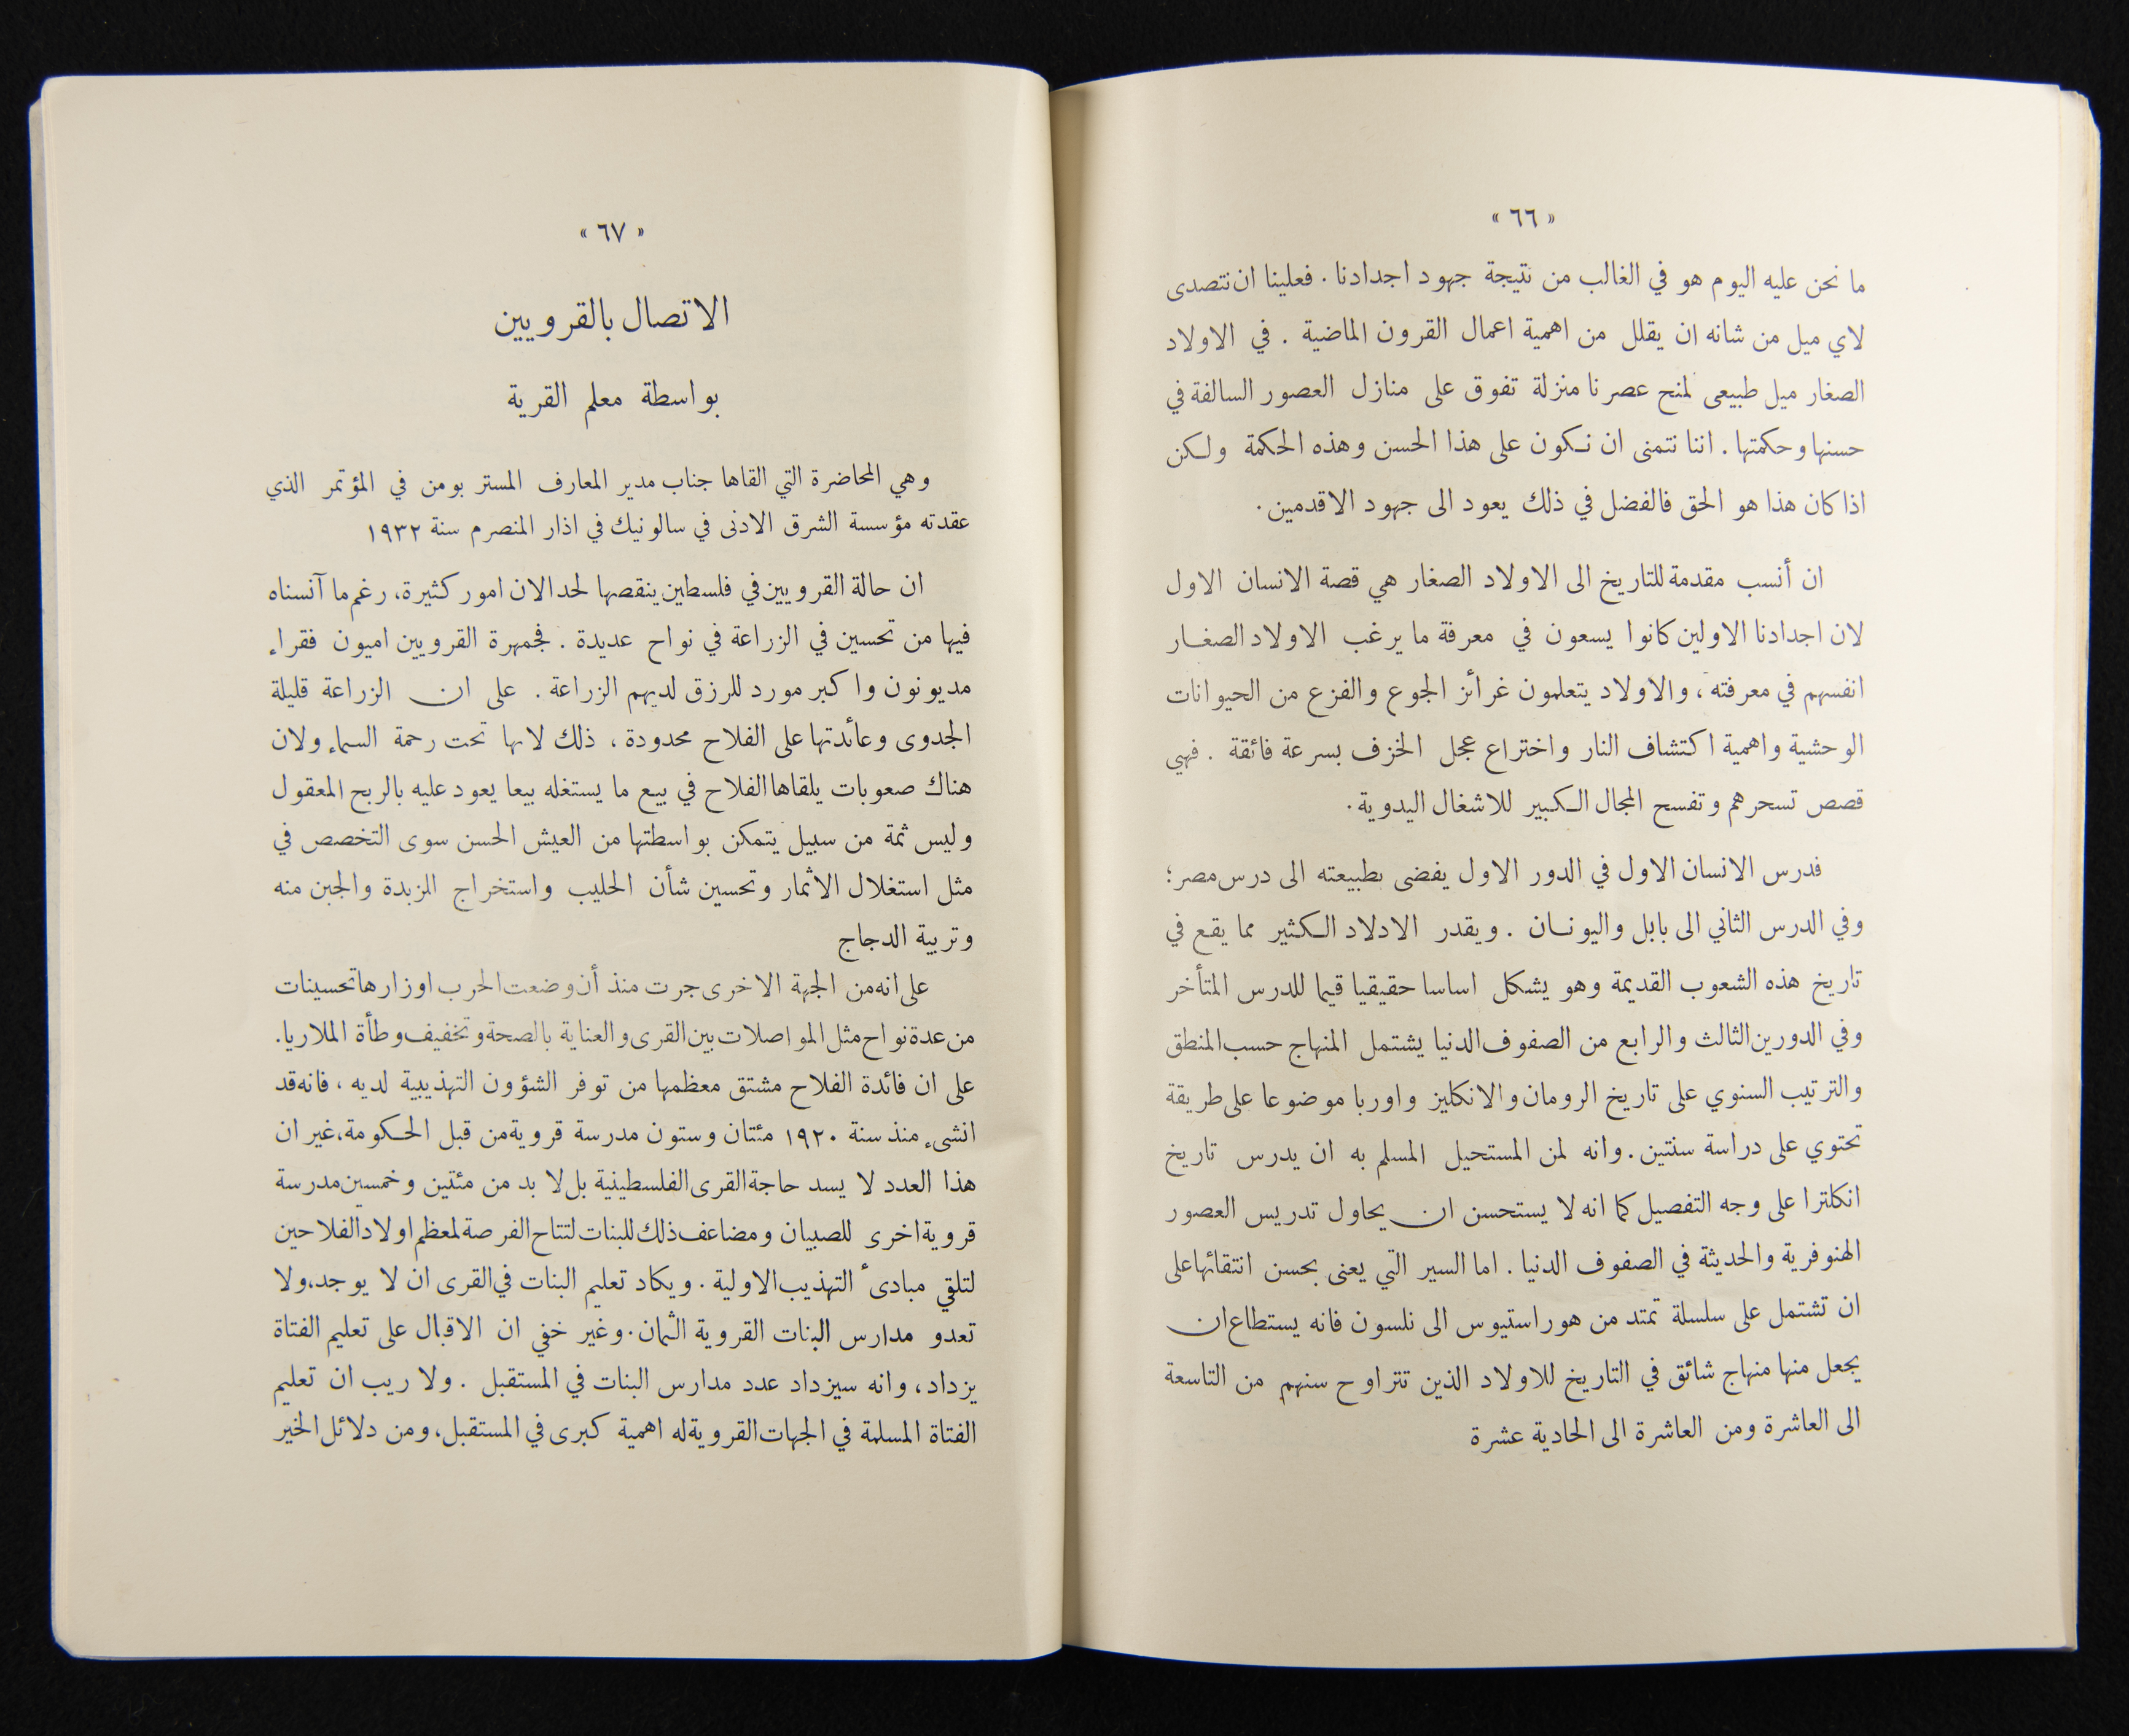 « ٦٦ »
ما نحن عليه اليوم هو في الغالب من نتيجة جهود اجدادنا . فعلينا ان نتصدى
لاي ميل من شانه ان يقلل من اهمية اعمال القرون الماضية . في الاولاد
الصغار ميل طبيعى لمنح عصرنا منزلة تفوق على منازل العصور السالفة في
حسنها وحكمتها . اننا نتمنى ان نكون على هذا الحسن وهذه الحكمة ولكن
اذا كان هذا هو الحق فالفضل في ذلك يعود الى جهود الاقدمين .
ان أنسب مقدمة للتاريخ الى الاولاد الصغار هي قصة الانسان الاول
لان اجدادنا الاولين كانوا يسعون في معرفة ما يرغب الاولاد الصغار
انفسهم في معرفته ، والاولاد يتعلمون غرائز الجوع والفزع من الحيوانات
الوحشية واهمية اكتشاف النار واختراع عجل الخزف بسرعة فائقة . فهي
قصص تسحرهم وتفسح المجال الكبير للاشغال اليدوية .
فدرس الانسان الاول في الدور الاول يفضى بطبيعته الى درس مصر ؛
وفي الدرس الثاني الى بابل واليونان . ويقدر الادلاد الكثير مما يقع في
تاريخ هذه الشعوب القديمة وهو يشكل اساسا حقيقيا قيما للدرس المتأخر
وفي الدورين الثالث والرابع من الصفوف الدنيا يشتمل المنهاج حسب المنطق
والترتيب السنوي على تاريخ الرومان والانكليز واوربا موضوعا على طريقة
تحتوي على دراسة سنتين . وانه لمن المستحيل المسلم به ان يدرس تاريخ
انكلترا على وجه التفصيل كما انه لا يستحسن ان يحاول تدريس العصور
الهنوفرية والحديثة في الصفوف الدنيا . اما السير التي يعنى بحسن انتقائها على
ان تشتمل على سلسلة تمتد من هوراستيوس الى نلسون فانه يستطاع ان
يجعل منها منهاج شائق في التاريخ للاولاد الذين تتراوح سنهم من التاسعة
الى العاشرة ومن العاشرة الى الحادية عشرة
« ٦٧ »
الاتصال بالقرويين
بواسطة معلم القرية
وهي المحاضرة التي القاها جناب مدير المعارف المستر بومن في المؤتمر الذي
عقدته مؤسسة الشرق الادنى في سالونيك في اذار المنصرم سنة ١٩٣٢
ان حالة القرويين في فلسطين ينقصها لحد الان امور كثيرة، رغم ما آنسناه
فيها من تحسين في الزراعة في نواح عديدة . فجمهرة القرويين اميون فقراء
مديونون واكبر مورد للرزق لديهم الزراعة . على ان الزراعة قليلة
الجدوى وعائدتها على الفلاح محدودة ، ذلك لانها تحت رحمة السماء ولان
هناك صعوبات يلقاها الفلاح في بيع ما يستغله بيعا يعود عليه بالربح المعقول
وليس ثمة من سبيل يتمكن بواسطتها من العيش الحسن سوى التخصص في
مثل استغلال الاثمار وتحسين شأن الحليب واستخراج الزبدة والجبن منه
وتربية الدجاج
على انه من الجهة الاخرى جرت منذ أن وضعت الحرب اوزارها تحسينات
من عدة نواح مثل المواصلات بين القرى والعناية بالصحة وتخفيف وطأة الملاريا .
على ان فائدة الفلاح مشتق معظمها من توفر الشؤون التهذيبية لديه ، فانه قد
انشىء منذ سنة ١٩٢٠ مئتان وستون مدرسة قروية من قبل الحكومة، غير ان
هذا العدد لا يسد حاجة القرى الفلسطينية بل لا بد من مئتين وخمسين مدرسة
قروية اخرى للصبيان ومضاعف ذلك للبنات لتتاح الفرصة لمعظم اولاد الفلاحين
لتلقي مبادىء التهذيب الاولية . ويكاد تعليم البنات في القرى ان لا يوجد، ولا
تعدو مدارس البنات القروية الثمان . وغير خفي ان الاقبال على تعليم الفتاة
يزداد ، وانه سيزداد عدد مدارس البنات في المستقبل . ولا ريب ان تعليم
الفتاة المسلمة في الجهات القروية له اهمية كبرى في المستقبل، ومن دلائل الخير